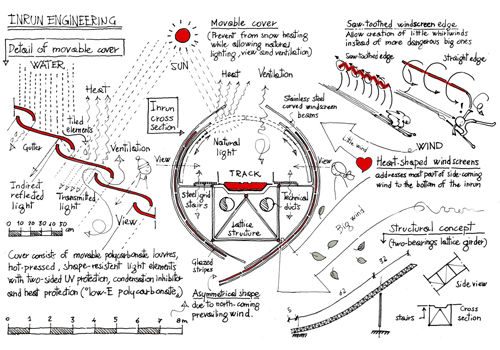 INRUN ENGINEERING
Detail of movable cover
WATER
SUN
Heat
Tilted
elements
Ventilation
Gutter
Indirect
reflected
light
Transmitted
light
View
0 10 20 30 40 50 cm
Cover consists of movable polycarbonate louvres,
hot-pressed, shape-resistent light elements
with two-sided UV protection, condensation inhibitor
and heat protection ("low-E polycarbonate„)
0 1 2 3 4 5 6 7 8m
Movable cover
(Prevent from snow heating
while allowing natural
lighting, view and ventilation)
Heat
Ventilation
Inrun
cross
section
Stainless steel
curved windscreen
beams
Natural
light
View
View
TRACK
Steel grid
stairs
Technical
ducts
Lattice
structure
Glazed
stripes
Asymmetrical shape
due to north-coming
prevailing wind.
Saw-toothed windscreen edge
Allow creation of little whirlwinds
instead of more dangerous big ones
Saw-toothed edge
Straight edge
WIND
Little wind
Heart-shaped windscreens
addresses most part of side-coming
wind to the bottom of the inrun
Big wind
Structural concept
(two-bearings lattice girder)
5
62
32
Side view
stairs
Cross
section